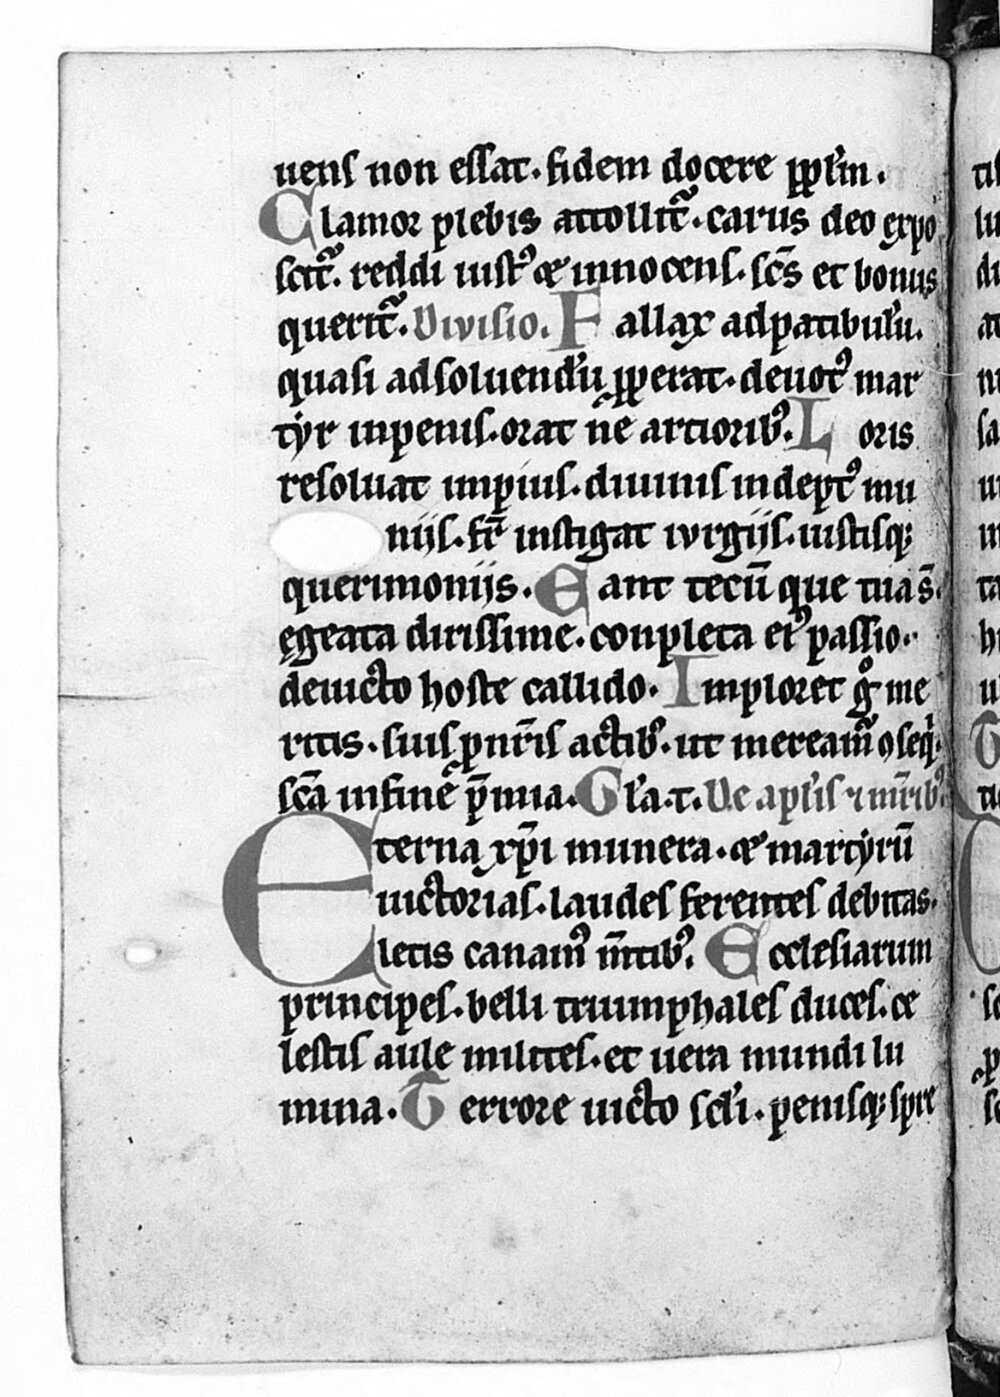 uens non essat. fidem docere ꝓpl̕m.
Clamor plebis attollit᷑. carus deo expo
scit᷑. reddi iustꝰ & innocens. sc̄s et bonus
querit᷑. Diuisio. Fallax ad patibul̕u.
quasi ad soluend̕u ꝓperat. deuotꝰ mar
tyr in penis. orat nē artioribꝰ. Loris
resoluat impius. diuinis indeptꝰ mu
niis. fr̄ instigat iurgiis. iustisqꝫ
querimoniis. Eant tecū que tua s̄.
egeata dirissime. conpleta eiꝰ passio.
deuicto hoste callido. Imploret gͦ me
ritis. suis ꝓ nr̄is actibꝰ. ut meream᷑ ꝯseqͥ.
sc̄a in fine p̄mia. Gl̕a. t. De apl̕is ⁊ mr̄ibꝰ
Eterna xp̄i munera. & martyrū
uictorias. laudes ferentes debitas.
letis canamꝰ m̄tibꝰ. Ecclesiarum
principes. belli triumphales duces. ce
lestis aule milites. et uera mundi lu
mina. Terrore uicto scl̕i. penisqꝫ spre